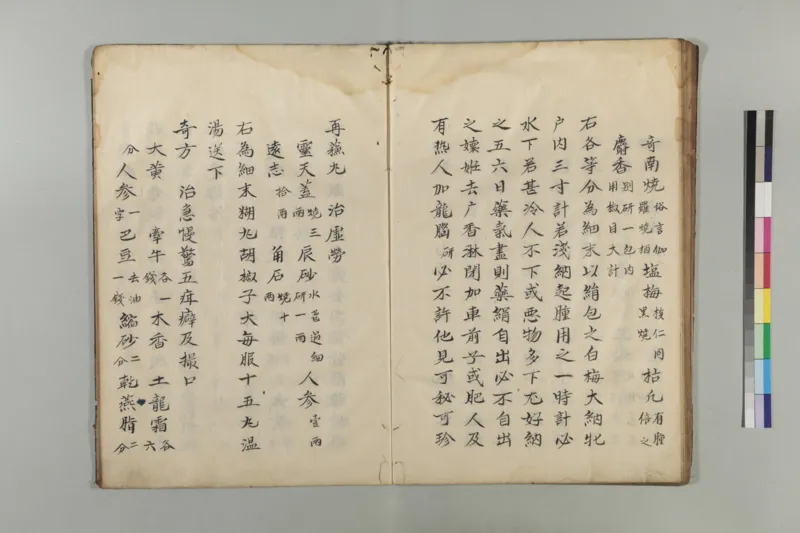 奇南燒俗言伽羅燒相塩梅核仁同黑燒枯凡有腫倍之
麝香別研一包内用椒目大計
右各等分為細末以絹包之白梅大納牝
户内三寸計若淺納起腫用之一時計必
水下若甚冷人不下或惡物多下尤好納
之五六日藥氣盡則藥絹自出必不自出
之嬢姙去广香淋閉加車前子或肥人及
有熱人加龍腦研必不許他見可秘可珍
再蘓丸治虛勞
靈天蓋燒三兩辰砂水飛過細研一兩人参壹兩
遠志拾兩角石燒十兩
右為細末糊丸胡椒子大每服十五丸温
湯送下
奇方 治急慢驚五疳癖及撮口
大黃 牽牛各一錢木香 土龍霜各六
分人参一字巴豆去油一錢縮砂二分乾燕脂二分